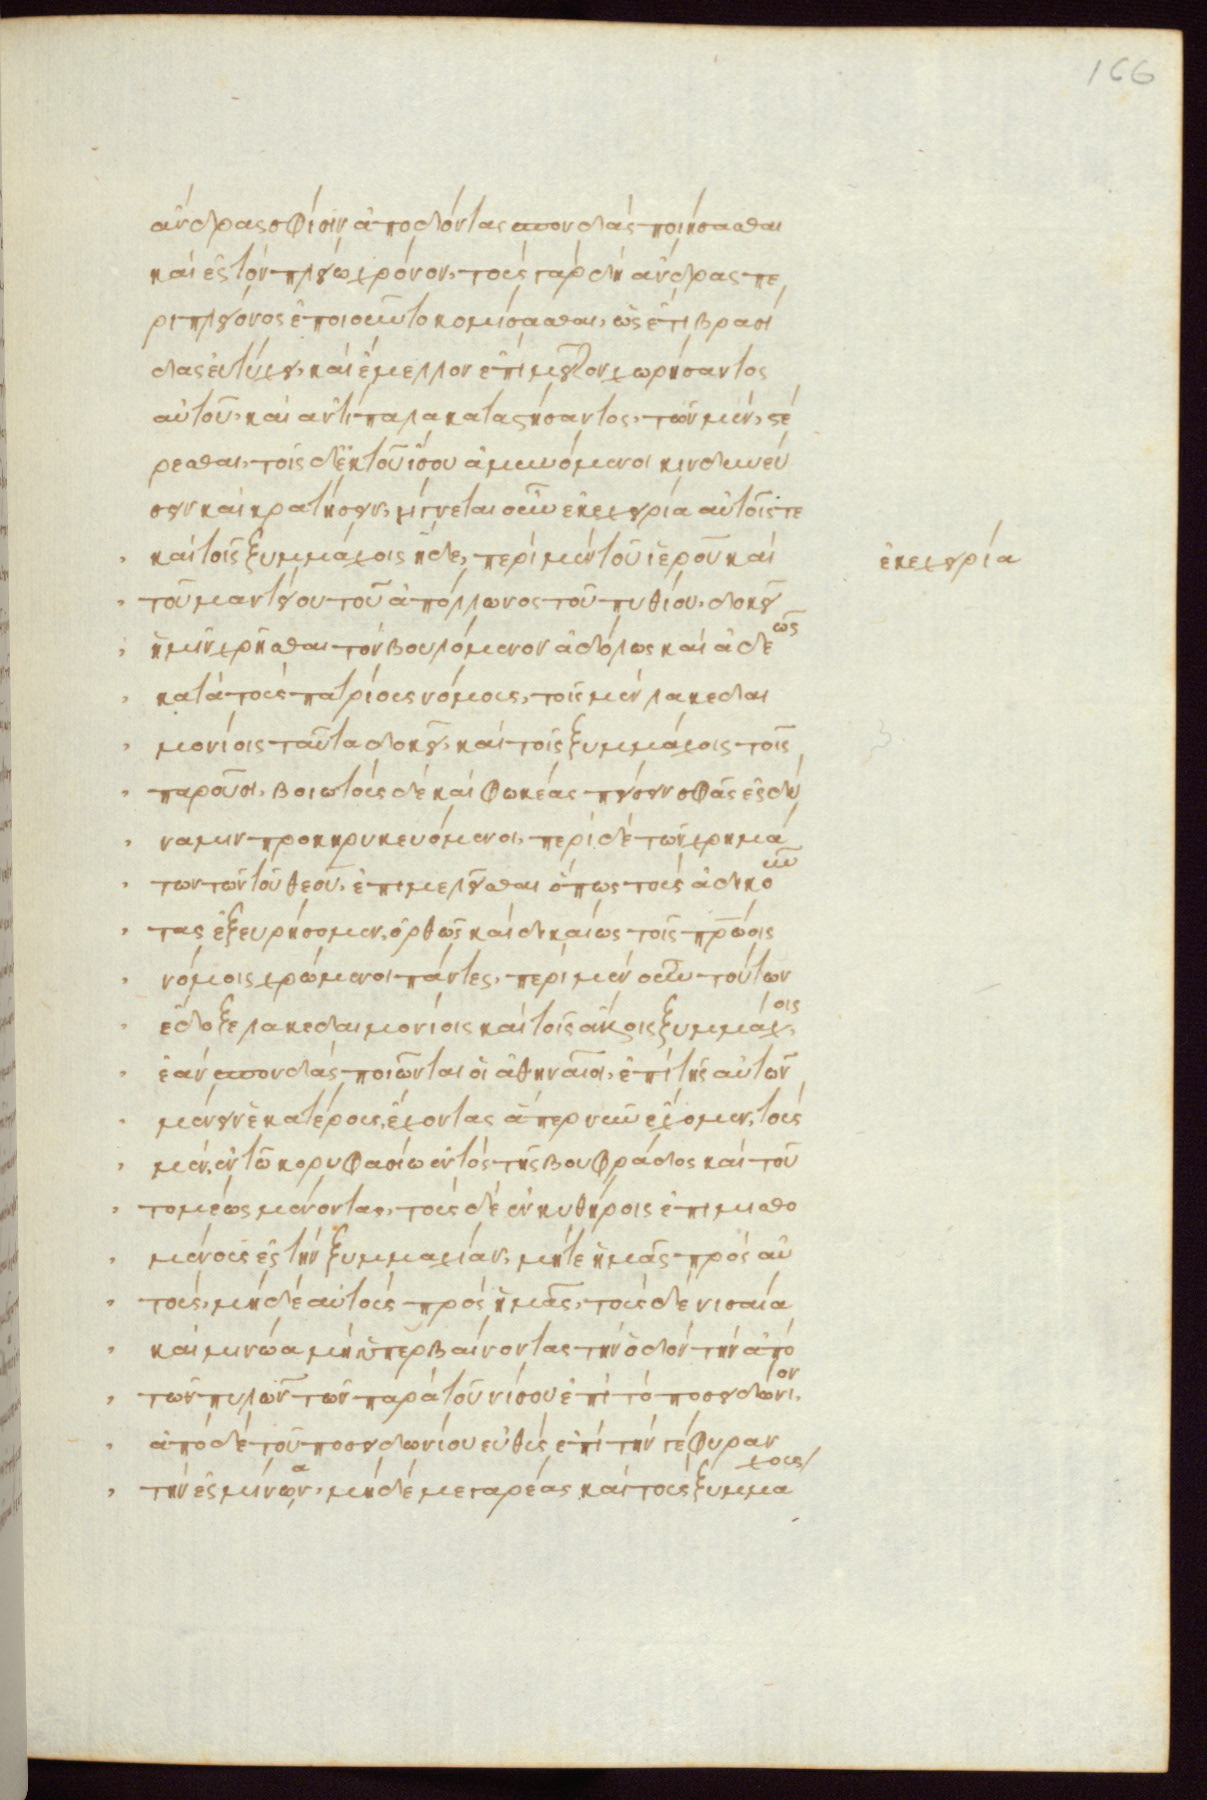 166
ἄνδρας σφίσιν ἀποδόντας σπονδὰς ποιήσασθαι
καὶ ἐς τὸν πλείω χρόνον, τοὺς γὰρ δὴ ἄνδρας πε
ρὶ πλείονος ἐποιοῦντο κομίσασθαι, ὡς ἔτι βρασί
δας εὐτύχει, καὶ ἔμελλον ἐπὶ μεῖζον χωρήσαντος
αὐτοῦ, καὶ ἀντίπαλα καταστήσαντος, τῶν μὲν, στέ
ρεσθαι, τοῖς δ' ἐκ τοῦ ἴσου ἀμυνόμενοι κινδυνεύ
σειν καὶ κρατήσειν, γίγνεται οὖν ἐκεχειρία αὐτοῖς τε
καὶ τοῖς ξυμμάχοις ἥδε, περὶ μὲν τοῦ ἱεροῦ καὶ
ἐκεχειρία
τοῦ μαντείου τοῦ ἀπόλλωνος τοῦ πυθίου, δοκεῖ
ἡμῖν χρῆσθαι τὸν βουλόμενον ἀδόλως καὶ ἀδεῶς
κατὰ τοὺς πατρίους νόμους, τοῖς μὲν λακεδαι
μονίοις ταῦτα δοκεῖ, καὶ τοῖς ξυμμάχοις τοῖς
παροῦσι, βοιωτοὺς δὲ καὶ φωκέας πείσειν φασὶν ἐς δύ
ναμιν προκηρυκευόμενοι, περὶ δὲ τῶν χρημά
των τῶν τοῦ θεοῦ, ἐπιμελεῖσθαι ὅπως τοὺς ἀδικοῦν
τας ἐξευρήσομεν, ὀρθῶς καὶ δικαίως τοῖς πατρώοις
νόμοις χρώμενοι πάντες, περὶ μὲν οὖν τούτων
ἔδοξε λακεδαιμονίοις καὶ τοῖς ἄλλοις ξυμμάχοις,
ἐὰν σπονδὰς ποιῶνται οἱ ἀθηναῖοι, ἐπὶ τῆς αὐτῶν
μένειν ἑκατέρους, ἔχοντας ἅπερ νῦν ἔχομεν, τοὺς
μὲν, ἐν τῶ κορυφασίω ἐντὸς τῆς βουφράδος καὶ τοῦ
τομέως μένοντας, τοὺς δὲ ἐν κυθήροις ἐπιμισθο
μένους ἐς τὴν ξυμμαχίαν, μήτε ἡμᾶς πρὸς αὐ
τοὺς, μηδὲ αὐτοὺς πρὸς ἡμᾶς, τοὺς δὲ νισαία
καὶ μινώα μὴ ὑπερβαίνοντας τὴν ὁδὸν τὴν ἀπὸ
τῶν πυλῶν τῶν παρὰ τοῦ νίσου ἐπὶ τὸ ποσειδώνιον,
ἀπὸ δὲ τοῦ ποσειδωνίου εὐθὺς ἐπὶ τὴν γέφυραν
τὴν ἐς μινώαν, μηδὲ μεγαρέας καὶ τοὺς ξυμμάχους